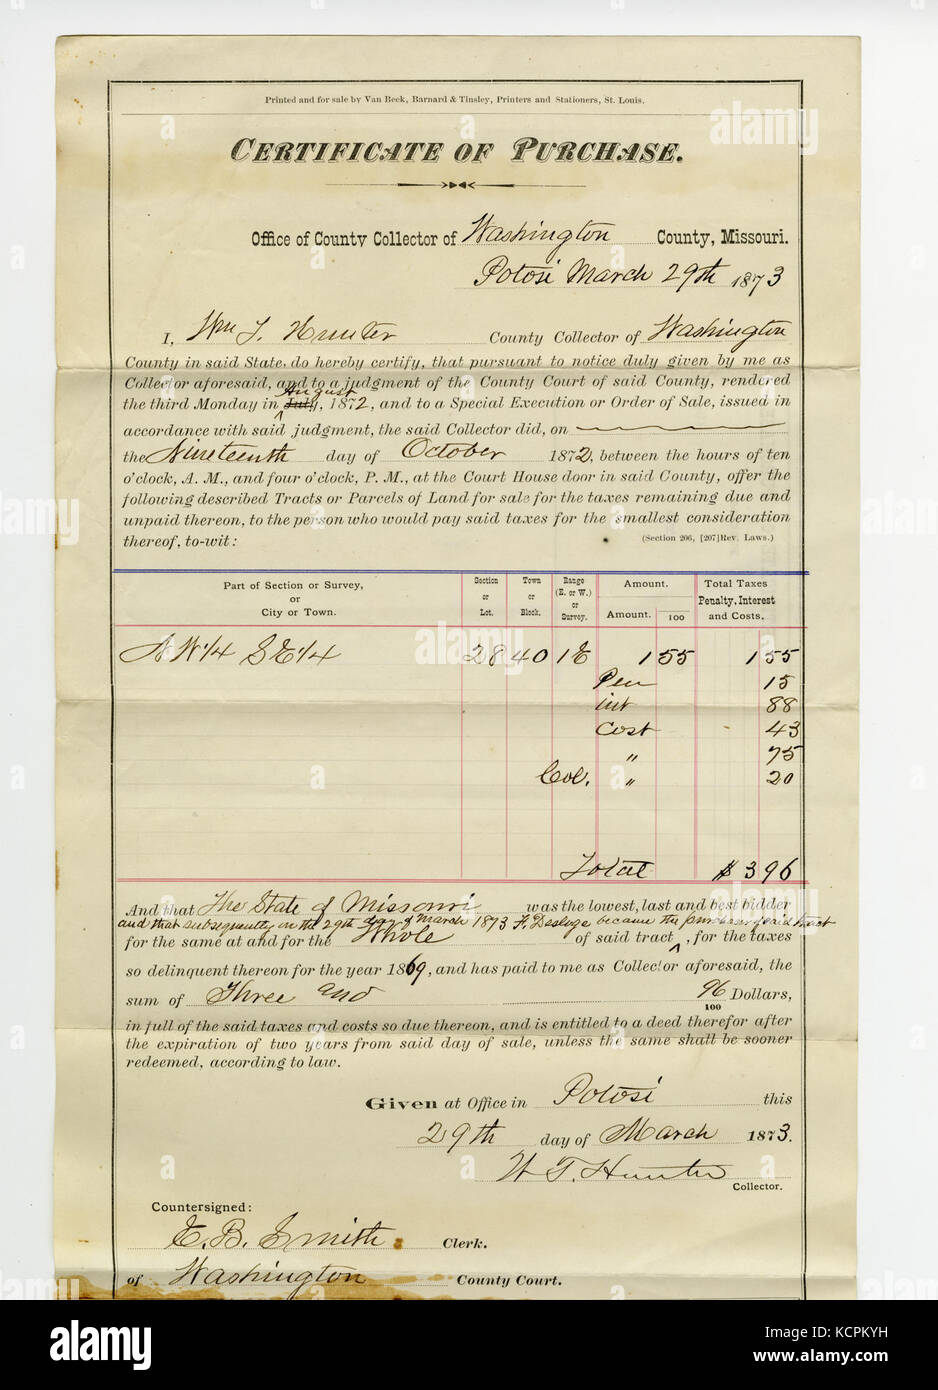 Printed and for sale by Van Beek, Barnard & Tinsley, Printers and Stationers, St. Louis.
CERTIFICATE OF PURCHASE.
Office of County Collector of Washington County, Missouri.
Potosi March 29th 1873
I, Wm T. Hunter County Collector of Washington
County in said State, do hereby certify, that pursuant to notice duly given by me as
Collector aforesaid, and to a judgment of the County Court of said County, rendered
August
the third Monday in July, 1872, and to a Special Execution or Order of Sale, issued in
accordance with said judgment, the said Collector did, on
the Nineteenth day of October 1872, between the hours of ten
o'clock, A. M., and four o'clock, P. M., at the Court House door in said County, offer the
following described Tracts or Parcels of Land for sale for the taxes remaining due and
unpaid thereon, to the person who would pay said taxes for the smallest consideration
thereof, to-wit: (Section 206, [207] Rev. Laws.)
Part of Section or Survey, or City or Town. Section or Lot. Town or Block. Range (E. or W.) or Survey. Amount. Amount. 100 Total Taxes Penalty, Interest and Costs.
N W 1/4 S E 1/4 28 40 1 E 1 55 1 55
Pen 15
int 88
Cost 43
" 75
Col. " 20
Total $ 3 96
And that The State of Missouri was the lowest, last and best bidder
and that subsequently on the 29th day of March 1873 F. Desloge became the purchaser of said tract
for the same at and for the Whole of said tract, for the taxes
so delinquent thereon for the year 1869, and has paid to me as Collector aforesaid, the
sum of Three and 96/100 Dollars,
in full of the said taxes and costs so due thereon, and is entitled to a deed therefor after
the expiration of two years from said day of sale, unless the same shall be sooner
redeemed, according to law.
Given at Office in Potosi this
29th day of March 1873.
W T. Hunter
Collector.
Countersigned:
E. B. Smith Clerk.
of Washington County Court.
alamy
a
alamy
Image ID: KCPKYH
www.alamy.com